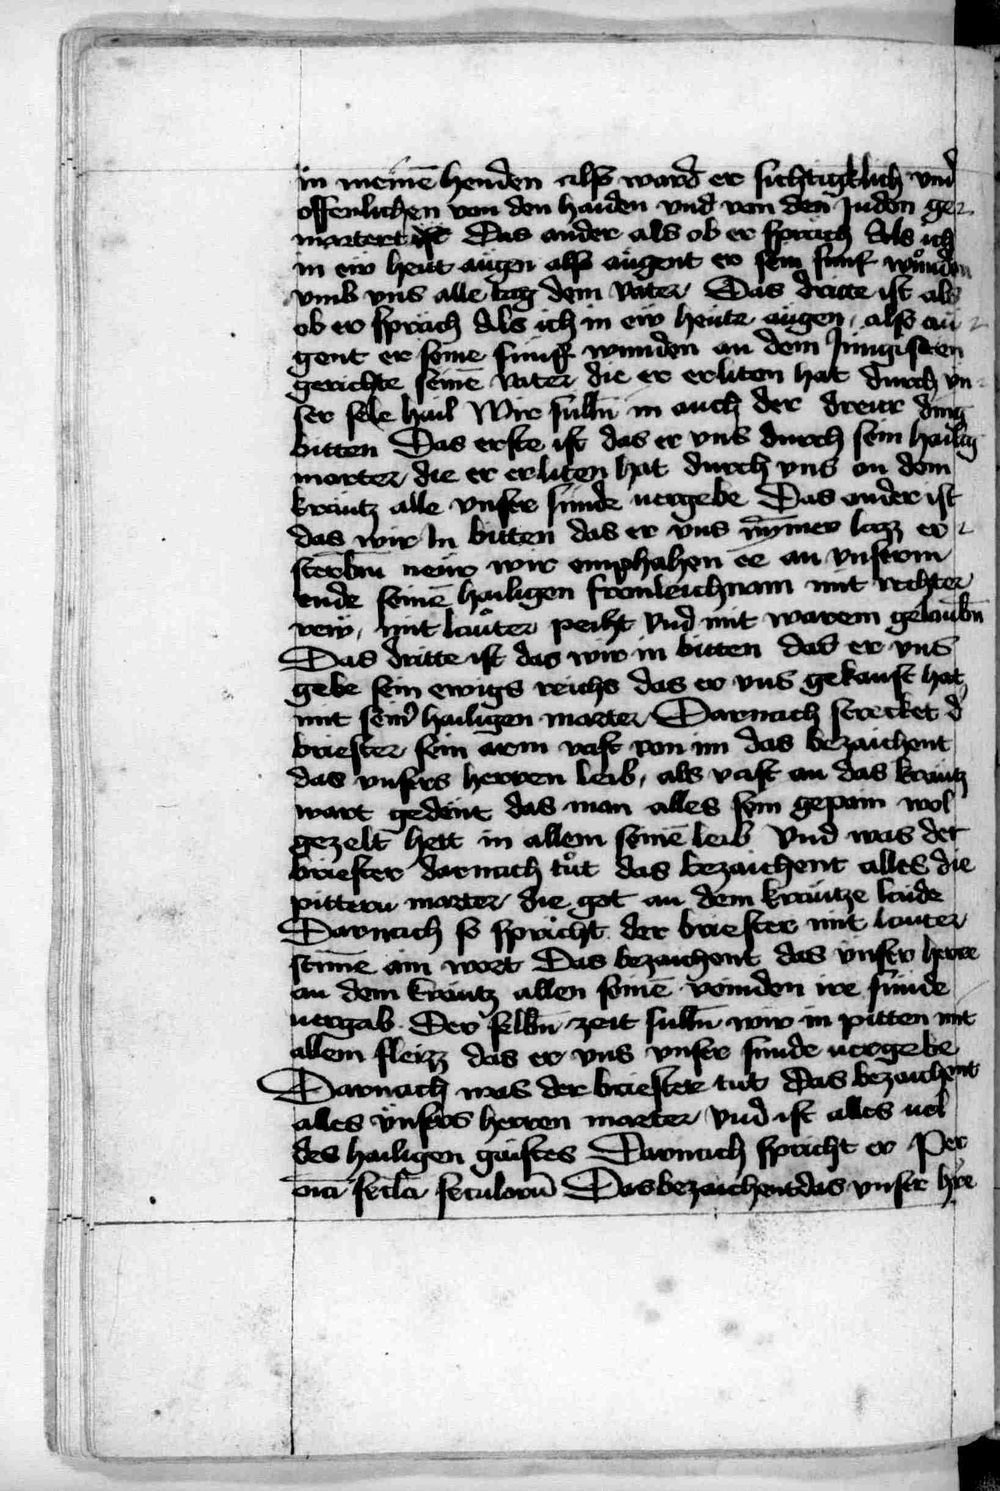 in meinē henden alss ward er sichtigklich vnd
offenlichen von den haiden vnd von den Juden ge-
martert Das ander als ob er sprach Als ich
in ew heut augen alss augent er sein funf wůnden
vmb vns alle tag dem vater Das dritte ist als
ob er sprach Als ich in ew heute augen, alss au-
gent er seine fünff wunden an dem Jungisten
gerichte seinē vater die er erliten hat durch vn-
ser sele hail Wir sulln̄ in auch der dreur ding
bitten Das erste ist das er vns durch sein hailig
marter die er erliten hat durch vns an dem
kräutz alle vnser sünde uergebe Das ander ist
das wir In bitten das er vns nȳmer lazz er-
sterbn̄ neür wir emphahen ee an vnserm
ende seinē hailigen fronleichnam mit rechter
rew, mit laůter peiht vnd mit warem gelaubn̄
Das dritte ist das wir in bitten das er vns
gebe sein ewigs reichs das er vns gekauft hat
mit seinr̄ hailigen marter Darnach strecket d̄
briester sein arm vast von im das bezaichent
das vnsers herren leib, als vast an das kräutz
wart gedent das man alles sein gepain wol
gezelt hett in allem seinē leib Vnd was der
briester darnach tůt das bezaichent alles die
pittern marter die got an dem kräutze laide
Darnach so spricht der briester mit lauter
stime ain wort Das bezaichent das vnser herre
an dem kräutz allen seinē veinden ire sünde
uergab Der selbn̄ zeit sulln̄ wir in pitten mit
allem fleizz das er vns vnser sunde uergebe
Darnach was der briester tut das bezaichent
alles vnsers herren marter vnd ist alles uol
des hailigen gaistes Darnach spricht er Per
om̄ia secl̄a seculorū Das bezaichent das vnser hr̄re